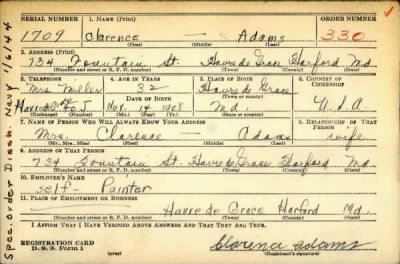 SERIAL NUMBER 1. NAME (Print) ORDER NUMBER
1709 Clarence — Adams 330
(First) (Middle) (Last)
2. ADDRESS (Print)
734 Fountain St. Havre de Grace Harford Md.
(Number and street or R. F. D. number) (Town) (County) (State)
3. TELEPHONE 4. AGE IN YEARS 5. PLACE OF BIRTH 6. COUNTRY OF CITIZENSHIP
Mrs Miller 32 Havre de Grace
DATE OF BIRTH (Town or county)
Havre de Nov. 14 1908 Md. U.S.A.
(Exchange) (Number) (Mo.) (Day) (Yr.) (State or country)
7. NAME OF PERSON WHO WILL ALWAYS KNOW YOUR ADDRESS 8. RELATIONSHIP OF THAT PERSON
Mrs. Clarence — Adams wife
(Mr., Mrs., Miss) (First) (Middle) (Last)
9. ADDRESS OF THAT PERSON
734 Fountain St. Havre de Grace Harford Md.
(Number and street or R. F. D. number) (Town) (County) (State)
10. EMPLOYER'S NAME
self - Painter
11. PLACE OF EMPLOYMENT OR BUSINESS
Havre de Grace Harford Md.
(Number and street or R. F. D. number) (Town) (County) (State)
I AFFIRM THAT I HAVE VERIFIED ABOVE ANSWERS AND THAT THEY ARE TRUE.
REGISTRATION CARD
D. S. S. Form 1
Clarence Adams
(Registrant's signature)
Spec. Order Disch. Navy 1/6/44